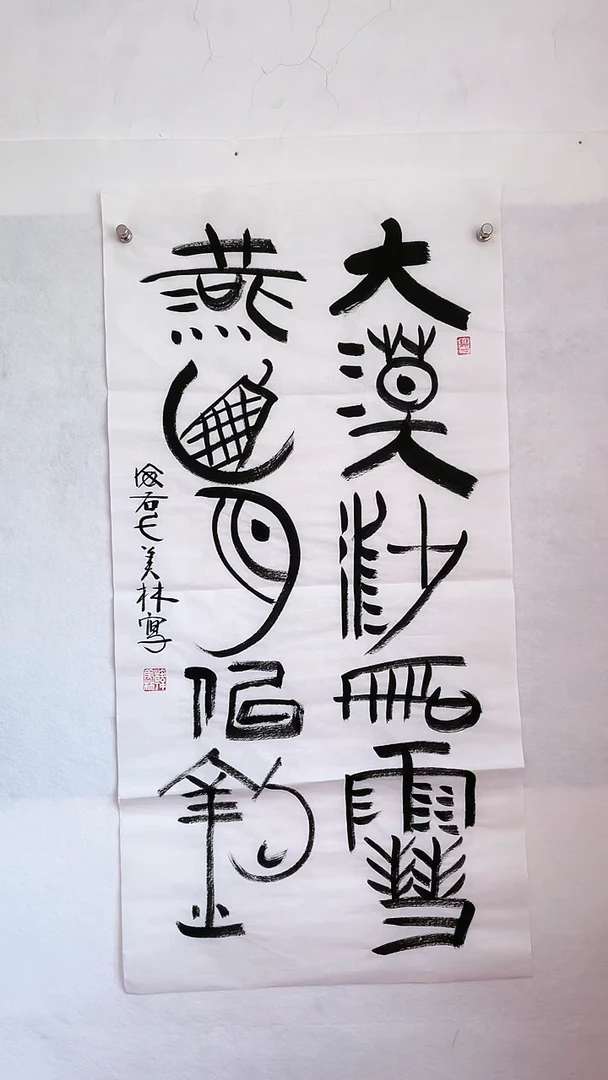 大漠沙如雪
燕山月似鉤
美林寫